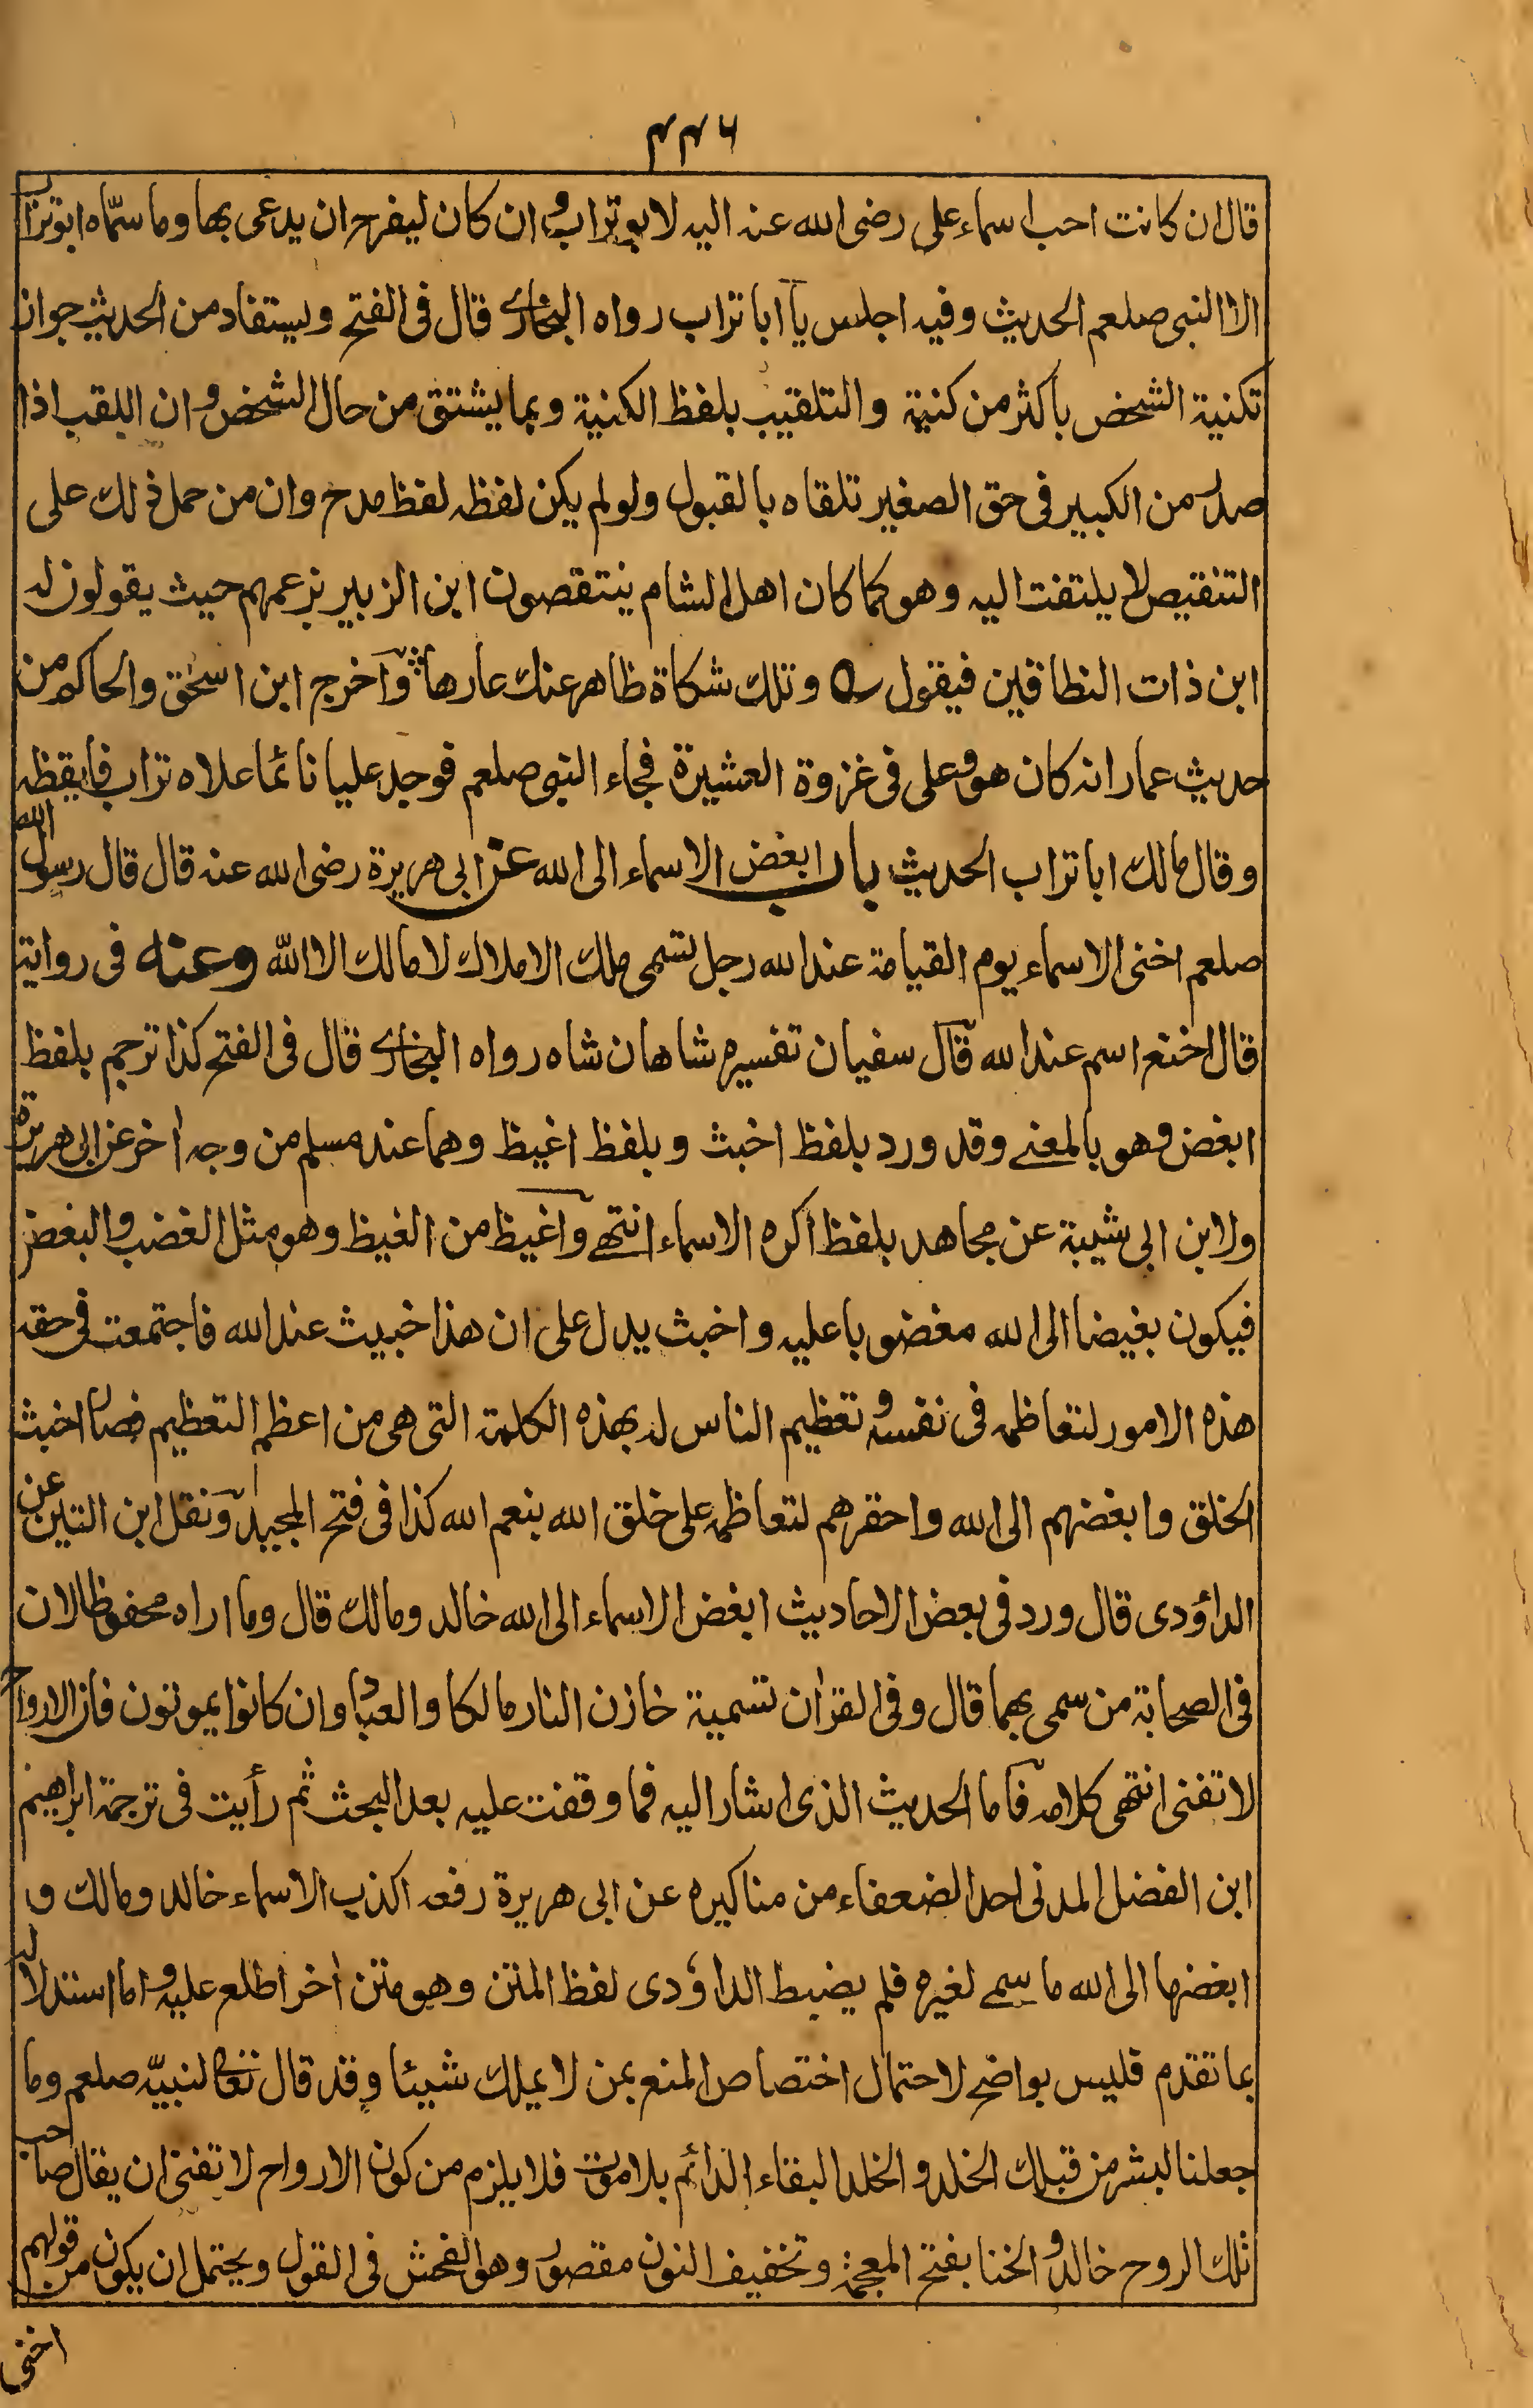 ۴۴۶
قال ان كانت احب اسماء علي رضى الله عنه اليه لابو تراب وان كان ليفرح ان يدعى بها وما سمّاه ابو تراب
الا النبي صلعم الحديث وفيه اجلس يا ابا تراب رواه البخاري قال في الفتح ويستفاد من الحديث جواز
تكنية الشخص باكثر من كنية والتلقيب بلفظ الكنية وبما يشتق من حال الشخص وان اللقب اذا
صدر من الكبير في حق الصغير تلقاه بالقبول ولو لم يكن لفظه لفظ مدح وان من حمل ذلك على
التنقيص لا يلتفت اليه وهو كما كان اهل الشام ينتقصون ابن الزبير بزعمهم حيث يقولون له
ابن ذات النطاقين فيقول ؎ وتلك شكاة ظاهر عنك عارها؞ واخرج ابن اسحٰق والحاكم من
حديث عمار انه كان هو وعلي في غزوة العشيرة فجاء النبي صلعم فوجد عليا نائما علاه تراب فايقظه
وقال مالك ابا تراب الحديث باب ابغض الاسماء الى الله عن ابي هريرة رضى الله عنه قال قال رسول الله
صلعم اخنى الاسماء يوم القيامة عند الله رجل تسمى ملك الاملاك لا مالك الا الله وعنه في رواية
قال اخنع اسم عند الله قال سفيان تفسيره شاهان شاه رواه البخاري قال في الفتح كذا ترجم بلفظ
ابغض وهو بالمعنے وقد ورد بلفظ اخبث وبلفظ اغيظ وهما عند مسلم من وجه اٰخر عن ابي هريرة
ولابن ابي شيبة عن مجاهد بلفظ اكره الاسماء انتهے واغيظ من الغيظ وهو مثل الغضب والبغض
فيكون بغيضا الى الله مغضوبا عليه واخبث يدل على ان هذا خبيث عند الله فاجتمعت في حقه
هذه الامور لتعاظمه في نفسه وتعظيم الناس له بهذه الكلمة التي هي من اعظم التعظيم فصار اخبث
الخلق وابغضهم الى الله واحقرهم لتعاظمه على خلق الله بنعم الله كذا في فتح المجيد ونقل ابن التين عن
الداؤدى قال ورد في بعض الاحاديث ابغض الاسماء الى الله خالد ومالك قال وما اراه محفوظا لان
في الصحابة من سمى بهما قال وفي القراٰن تسمية خازن النار مالكا والعباد وان كانوا يموتون فان الارواح
لا تفنى انتهى كلامه فاما الحديث الذى اشار اليه فما وقفت عليه بعد البحث ثم رأيت في ترجمة ابراهيم
ابن الفضل المدني احد الضعفاء من مناكيره عن ابي هريرة رفعه اكذب الاسماء خالد ومالك و
ابغضها الى الله ما سمے لغيره فلم يضبط الداؤدى لفظ المتن وهو متن اٰخر اطلع عليه واما استدلاله
بما تقدم فليس بواضح لاحتمال اختصاص المنع بمن لا يملك شيئا وقد قال تعالى لنبيّه صلعم وما
جعلنا لبشر من قبلك الخلد والخلد البقاء الدائم بلا موت فلا يلزم من كون الارواح لا تفنى ان يقال صاحب
تلك الروح خالد والخنا بفتح المعجمة وتخفيف النون مقصور وهو الفحش في القول ويحتمل ان يكون من قولهم
اخنى